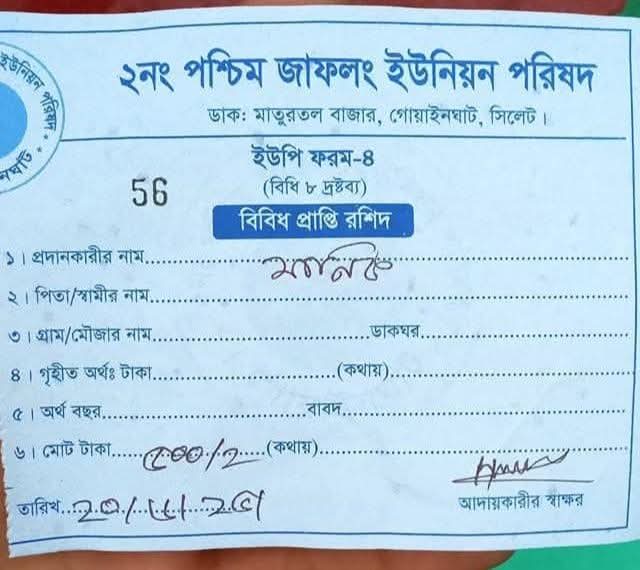 ইউনিয়ন পরিষদ
২নং পশ্চিম জাফলং ইউনিয়ন পরিষদ
ডাক: মাতুরতল বাজার, গোয়াইনঘাট, সিলেট।
ইউপি ফরম-৪
56
(বিধি ৮ দ্রষ্টব্য)
বিবিধ প্রাপ্তি রশিদ
১। প্রদানকারীর নাম মানিক
২। পিতা/স্বামীর নাম
৩। গ্রাম/মৌজার নাম ডাকঘর
৪। গৃহীত অর্থঃ টাকা (কথায়)
৫। অর্থ বছর বাবদ
৬। মোট টাকা ৫০০/২ (কথায়)
তারিখ
আদায়কারীর স্বাক্ষর